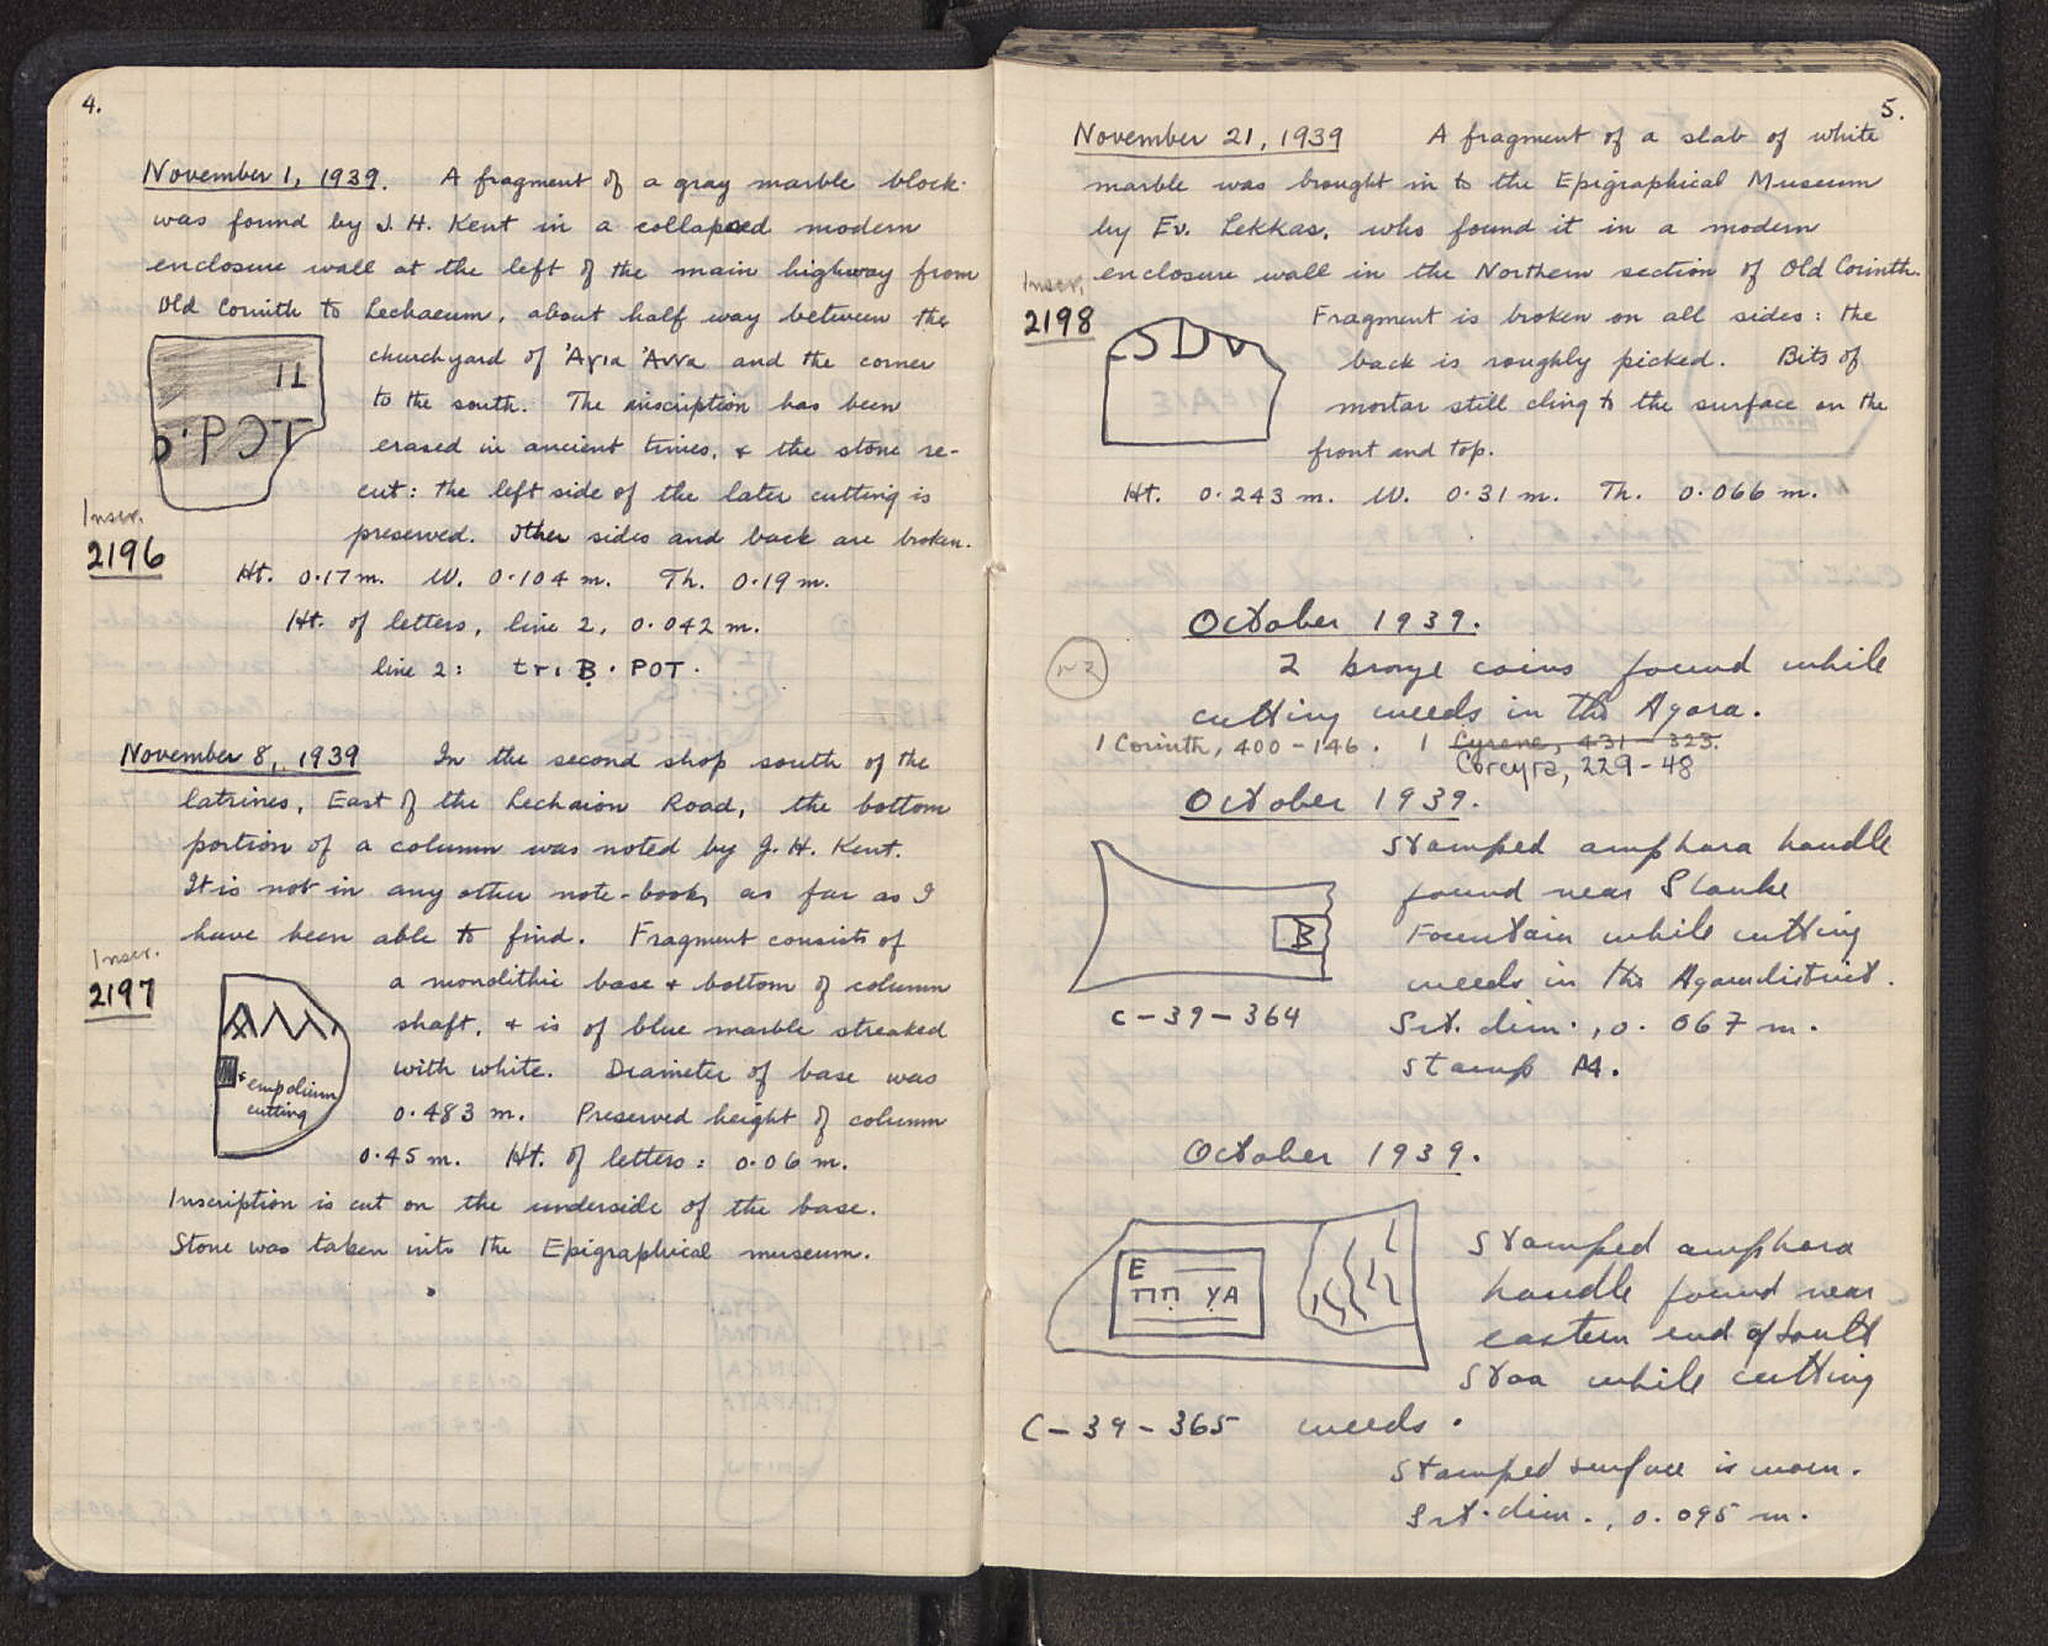 4.
November 1, 1939. A fragment of a gray marble block
was found by J. H. Kent in a collapsed modern
enclosure wall at the left of the main highway from
Old Corinth to Lechaeum, about half way between the
churchyard of Ἁγια Ἀννα and the corner
to the south. The inscription has been
erased in ancient times, & the stone re-
cut: the left side of the later cutting is
preserved. Other sides and back are broken.
Inscr.
2196
Ht. 0.17 m. W. 0.104 m. Th. 0.19 m.
Ht. of letters, line 2, 0.042 m.
line 2: triḄ · POT ·
November 8, 1939 In the second shop south of the
latrines, East of the Lechaion Road, the bottom
portion of a column was noted by J. H. Kent.
It is not in any other note-book, as far as I
have been able to find. Fragment consists of
Inscr.
2197
a monolithic base & bottom of column
shaft, & is of blue marble streaked
with white. Diameter of base was
empolium
cutting
0.483 m. Preserved height of column
0.45 m. Ht. of letters: 0.06 m.
Inscription is cut on the underside of the base.
Stone was taken into the Epigraphical museum.
5.
November 21, 1939 A fragment of a slab of white
marble was brought in to the Epigraphical Museum
by Ev. Lekkas, who found it in a modern
enclosure wall in the Northern section of Old Corinth.
Inscr.
2198
Fragment is broken on all sides: the
back is roughly picked. Bits of
mortar still cling to the surface on the
front and top.
Ht. 0.243 m. W. 0.31 m. Th. 0.066 m.
October 1939.
2 bronze coins found while
cutting weeds in the Agora.
1 Corinth, 400-146. 1 Cyrene, 431-323.
Corcyra, 229-48
October 1939.
Stamped amphora handle
found near Glauke
B
Fountain while cutting
weeds in the Agora district.
C-39-364
Grt. dim., 0.067 m.
Stamp
October 1939.
Stamped amphora
E
ΠΠ ΥΑ
handle found near
eastern end of South
Stoa while cutting
C-39-365 weeds.
Stamped surface is worn.
Grt. dim., 0.095 m.